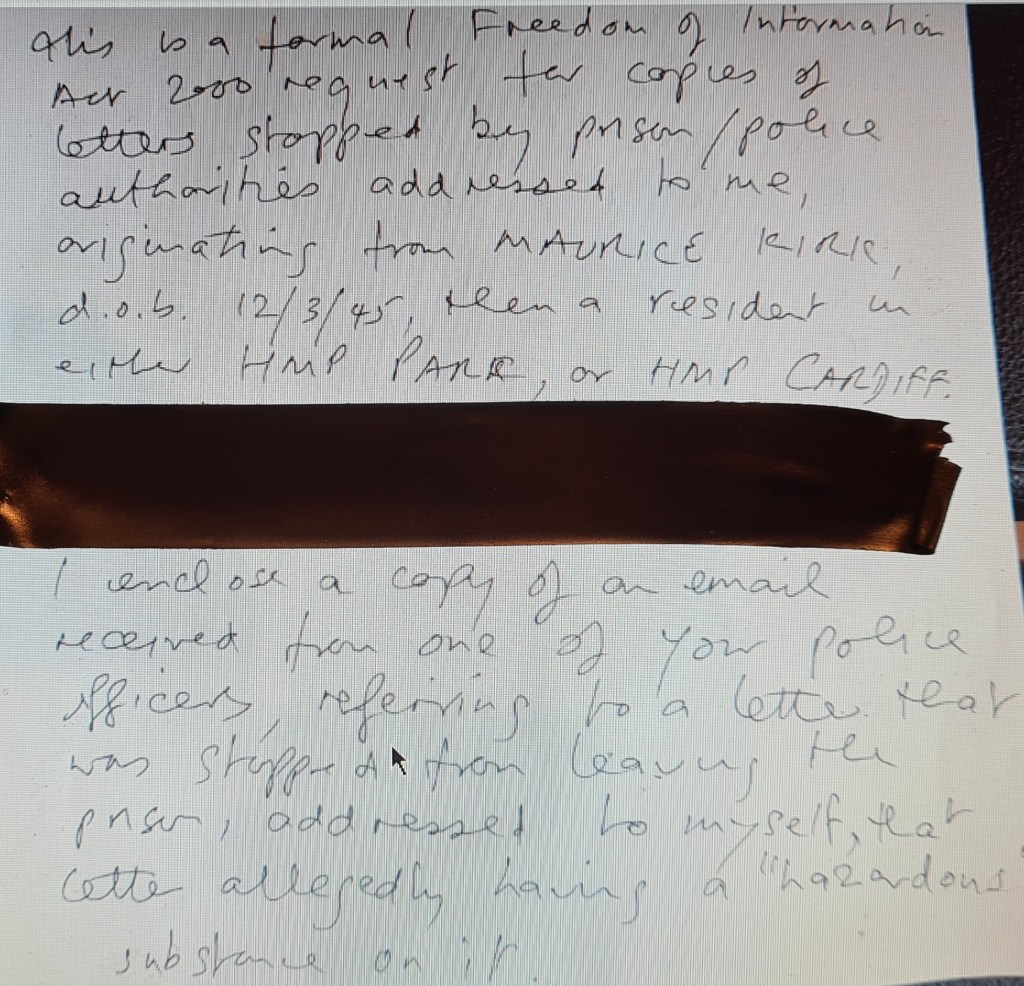 This is a formal Freedom of Information
Act 2000 request for copies of
letters stopped by prison/police
authorities addressed to me,
originating from MAURICE KIRK,
d.o.b. 12/3/45, then a resident in
either HMP PARK, or HMP CARDIFF.
I enclose a copy of an email
received from one of your police
officers, referring to a letter that
was stopped from leaving the
prison, addressed to myself, that
letter allegedly having a "hazardous
substance on it.